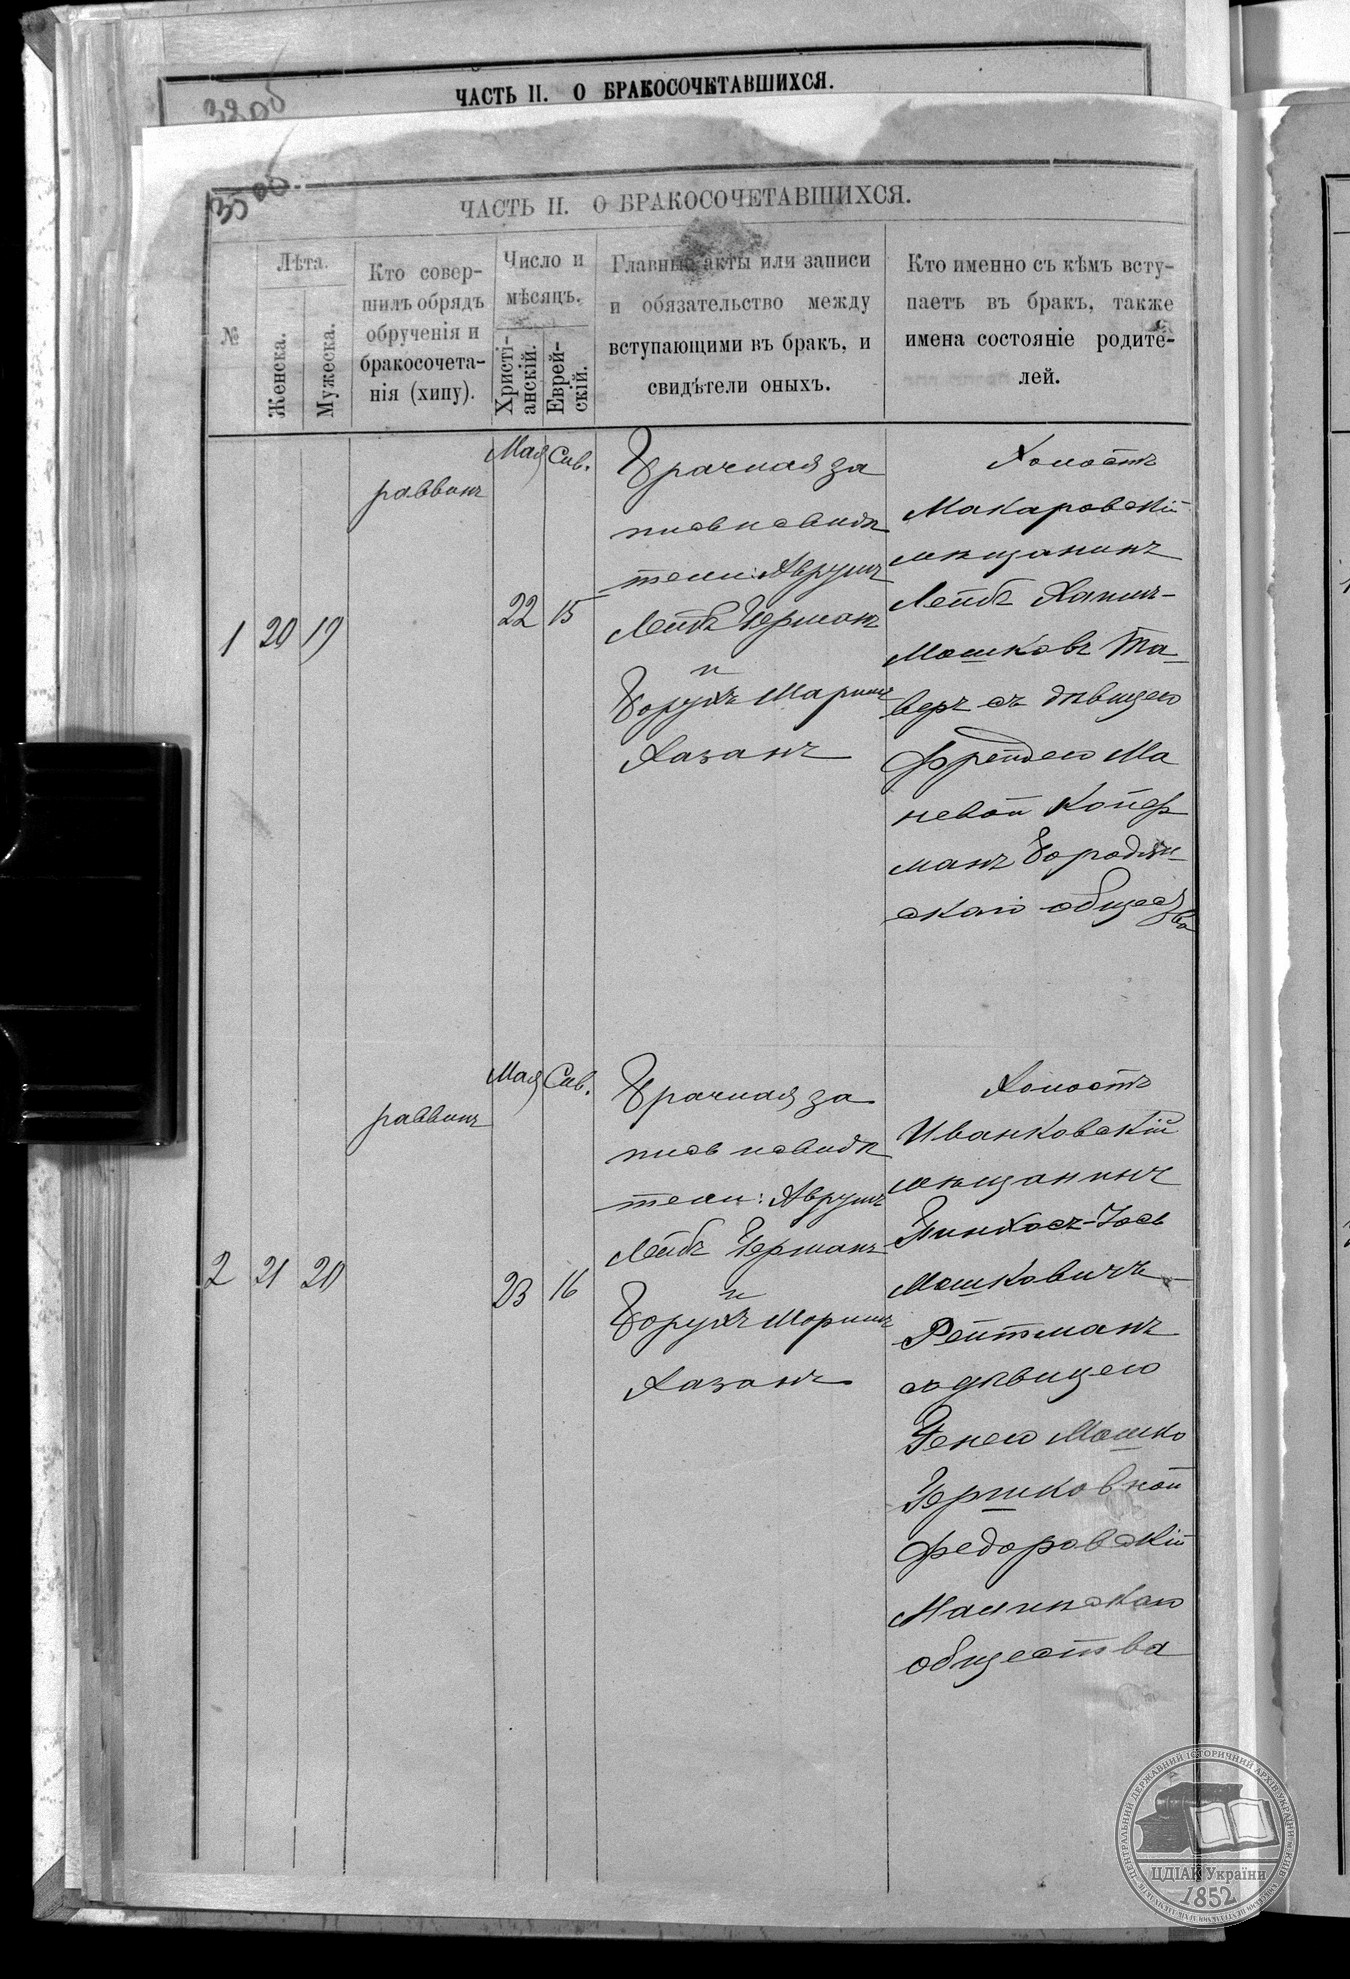 ЧАСТЬ II. О БРАКОСОЧЕТАВШИХСЯ.
38об
35об.
ЧАСТЬ II. О БРАКОСОЧЕТАВШИХСЯ.
№
Лѣта.
Женска.
Мужеска.
Кто совер-
шилъ обрядъ
обрученія и
бракосочета-
нія (хипу).
Число и
мѣсяцъ.
Христі-
анскій.
Еврей-
скій.
Главные акты или записи
и обязательство между
вступающими въ бракъ, и
свидѣтели оныхъ.
Кто именно съ кѣмъ всту-
паетъ въ бракъ, также
имена состояніе родите-
лей.
1
20
19
раввинъ
Мая
22
Сив.
15
Брачная за
пись и свидѣ
тели: Аврумъ
Лейбъ Германъ
и
Борухъ Мариии
Хазанъ
Холостъ
Макаровскій
мѣщанинъ
Лейбъ Хаим-
Мошковъ Та-
веръ съ дѣвицею
Фрейдею Ма
невой Койф
манъ Бородян-
скаго общества
2
21
20
раввинъ
Мая
23
Сив.
16
Брачная за
пись и свидѣ
тели: Аврумъ
Лейбъ Германъ
и
Борухъ
Хазанъ
Холостъ
Иванковскій
мѣщанинъ
Пинхосъ-Іось
Мошковичъ
Рейтманъ
съ дѣвицею
Генею Мошко
Гершковной
Федоровскій
Малинскаго
общества
ЦЕНТРАЛЬНИЙ ДЕРЖАВНИЙ ІСТОРИЧНИЙ АРХІВ УКРАЇНИ М.КИЇВ
ЦДІАК України
1852